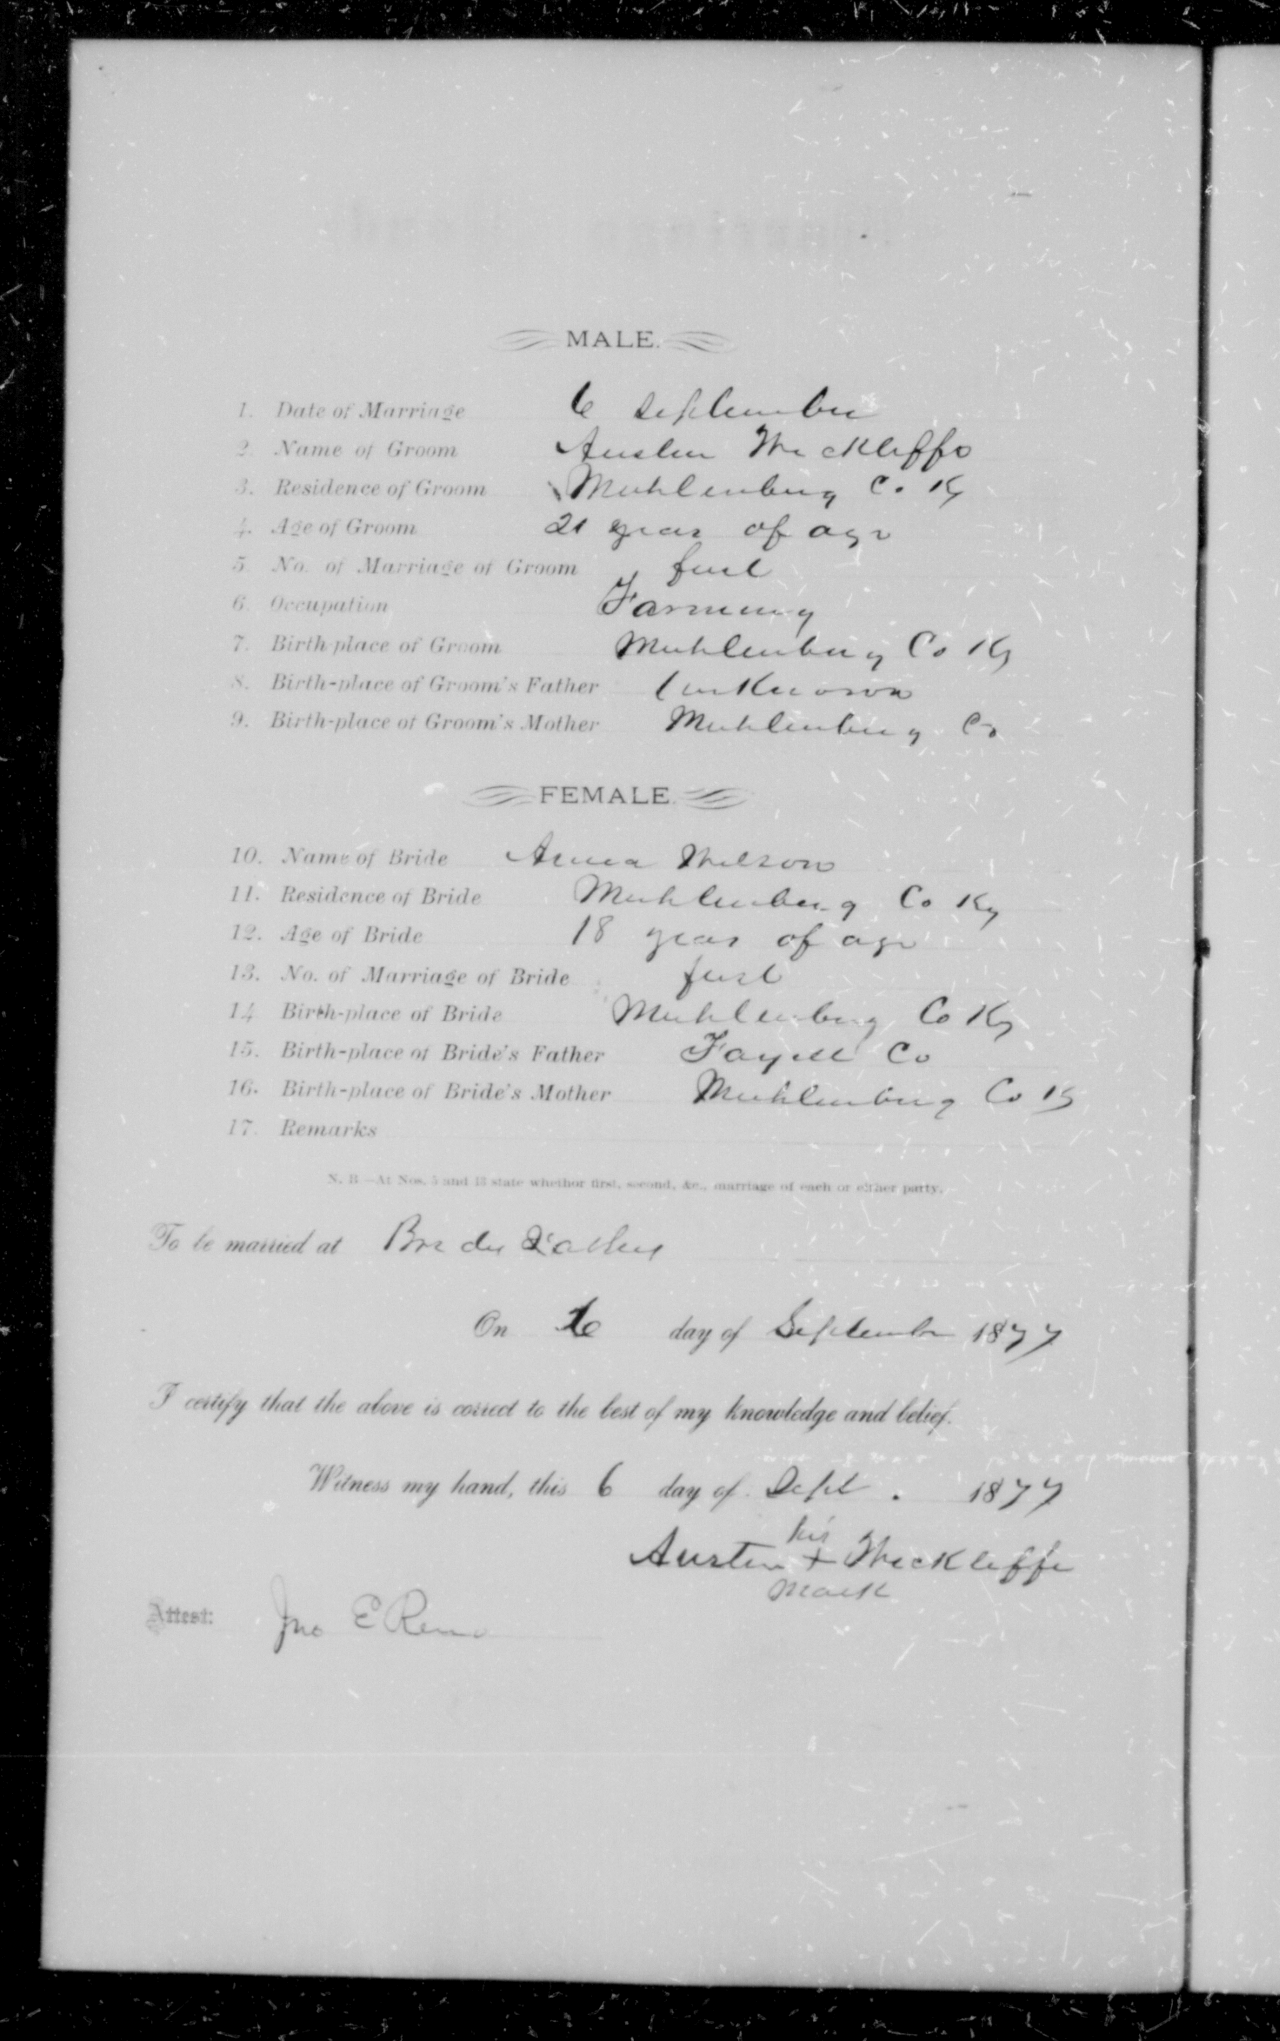 MALE.
1. Date of Marriage 6 September
2. Name of Groom Austin Wickliffe
3. Residence of Groom Muhlenburg C. Ky
4. Age of Groom 21 years of age
5. No. of Marriage of Groom first
6. Occupation Farming
7. Birth-place of Groom Muhlenburg Co Ky
8. Birth-place of Groom's Father Unknown
9. Birth-place of Groom's Mother Muhlenburg Co
FEMALE.
10. Name of Bride Wilson
11. Residence of Bride Muhlenburg Co Ky
12. Age of Bride 18 years of age
13. No. of Marriage of Bride first
14. Birth-place of Bride Muhlenburg Co Ky
15. Birth-place of Bride's Father Fayett Co
16. Birth-place of Bride's Mother Muhlenburg Co Ky
17. Remarks
N. B.—At Nos. 5 and 13 state whether first, second, &c., marriage of each or either party.
To be married at Brides Fathers
On 6 day of September 1877
I certify that the above is correct to the best of my knowledge and belief.
Witness my hand, this 6 day of Sept. 1877
his
Austin + Wickliffe
mark
Attest: Jno E Reno